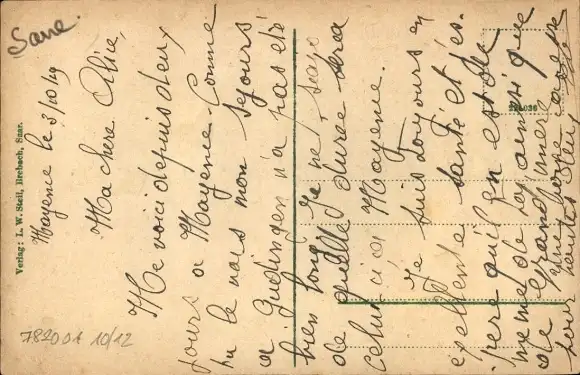 Sarre.
Mayence le 3/10/19
Ma chère Alice,
Me voici depuis deux
jours a Mayence. Comme
tu le vois mon séjours
a Gudingen n'a pas été
bien long. Je ne sais
de quelle durée sera
celui ci a Mayence.
Je suis toujours en
exellente santé et es-
père qu'il en est de
meme de toi ainsi que
de Grand'mère
Une bonne caresse
pour toutes
Verlag: L. W. Steil, Brebach, Saar.
782001 10/12